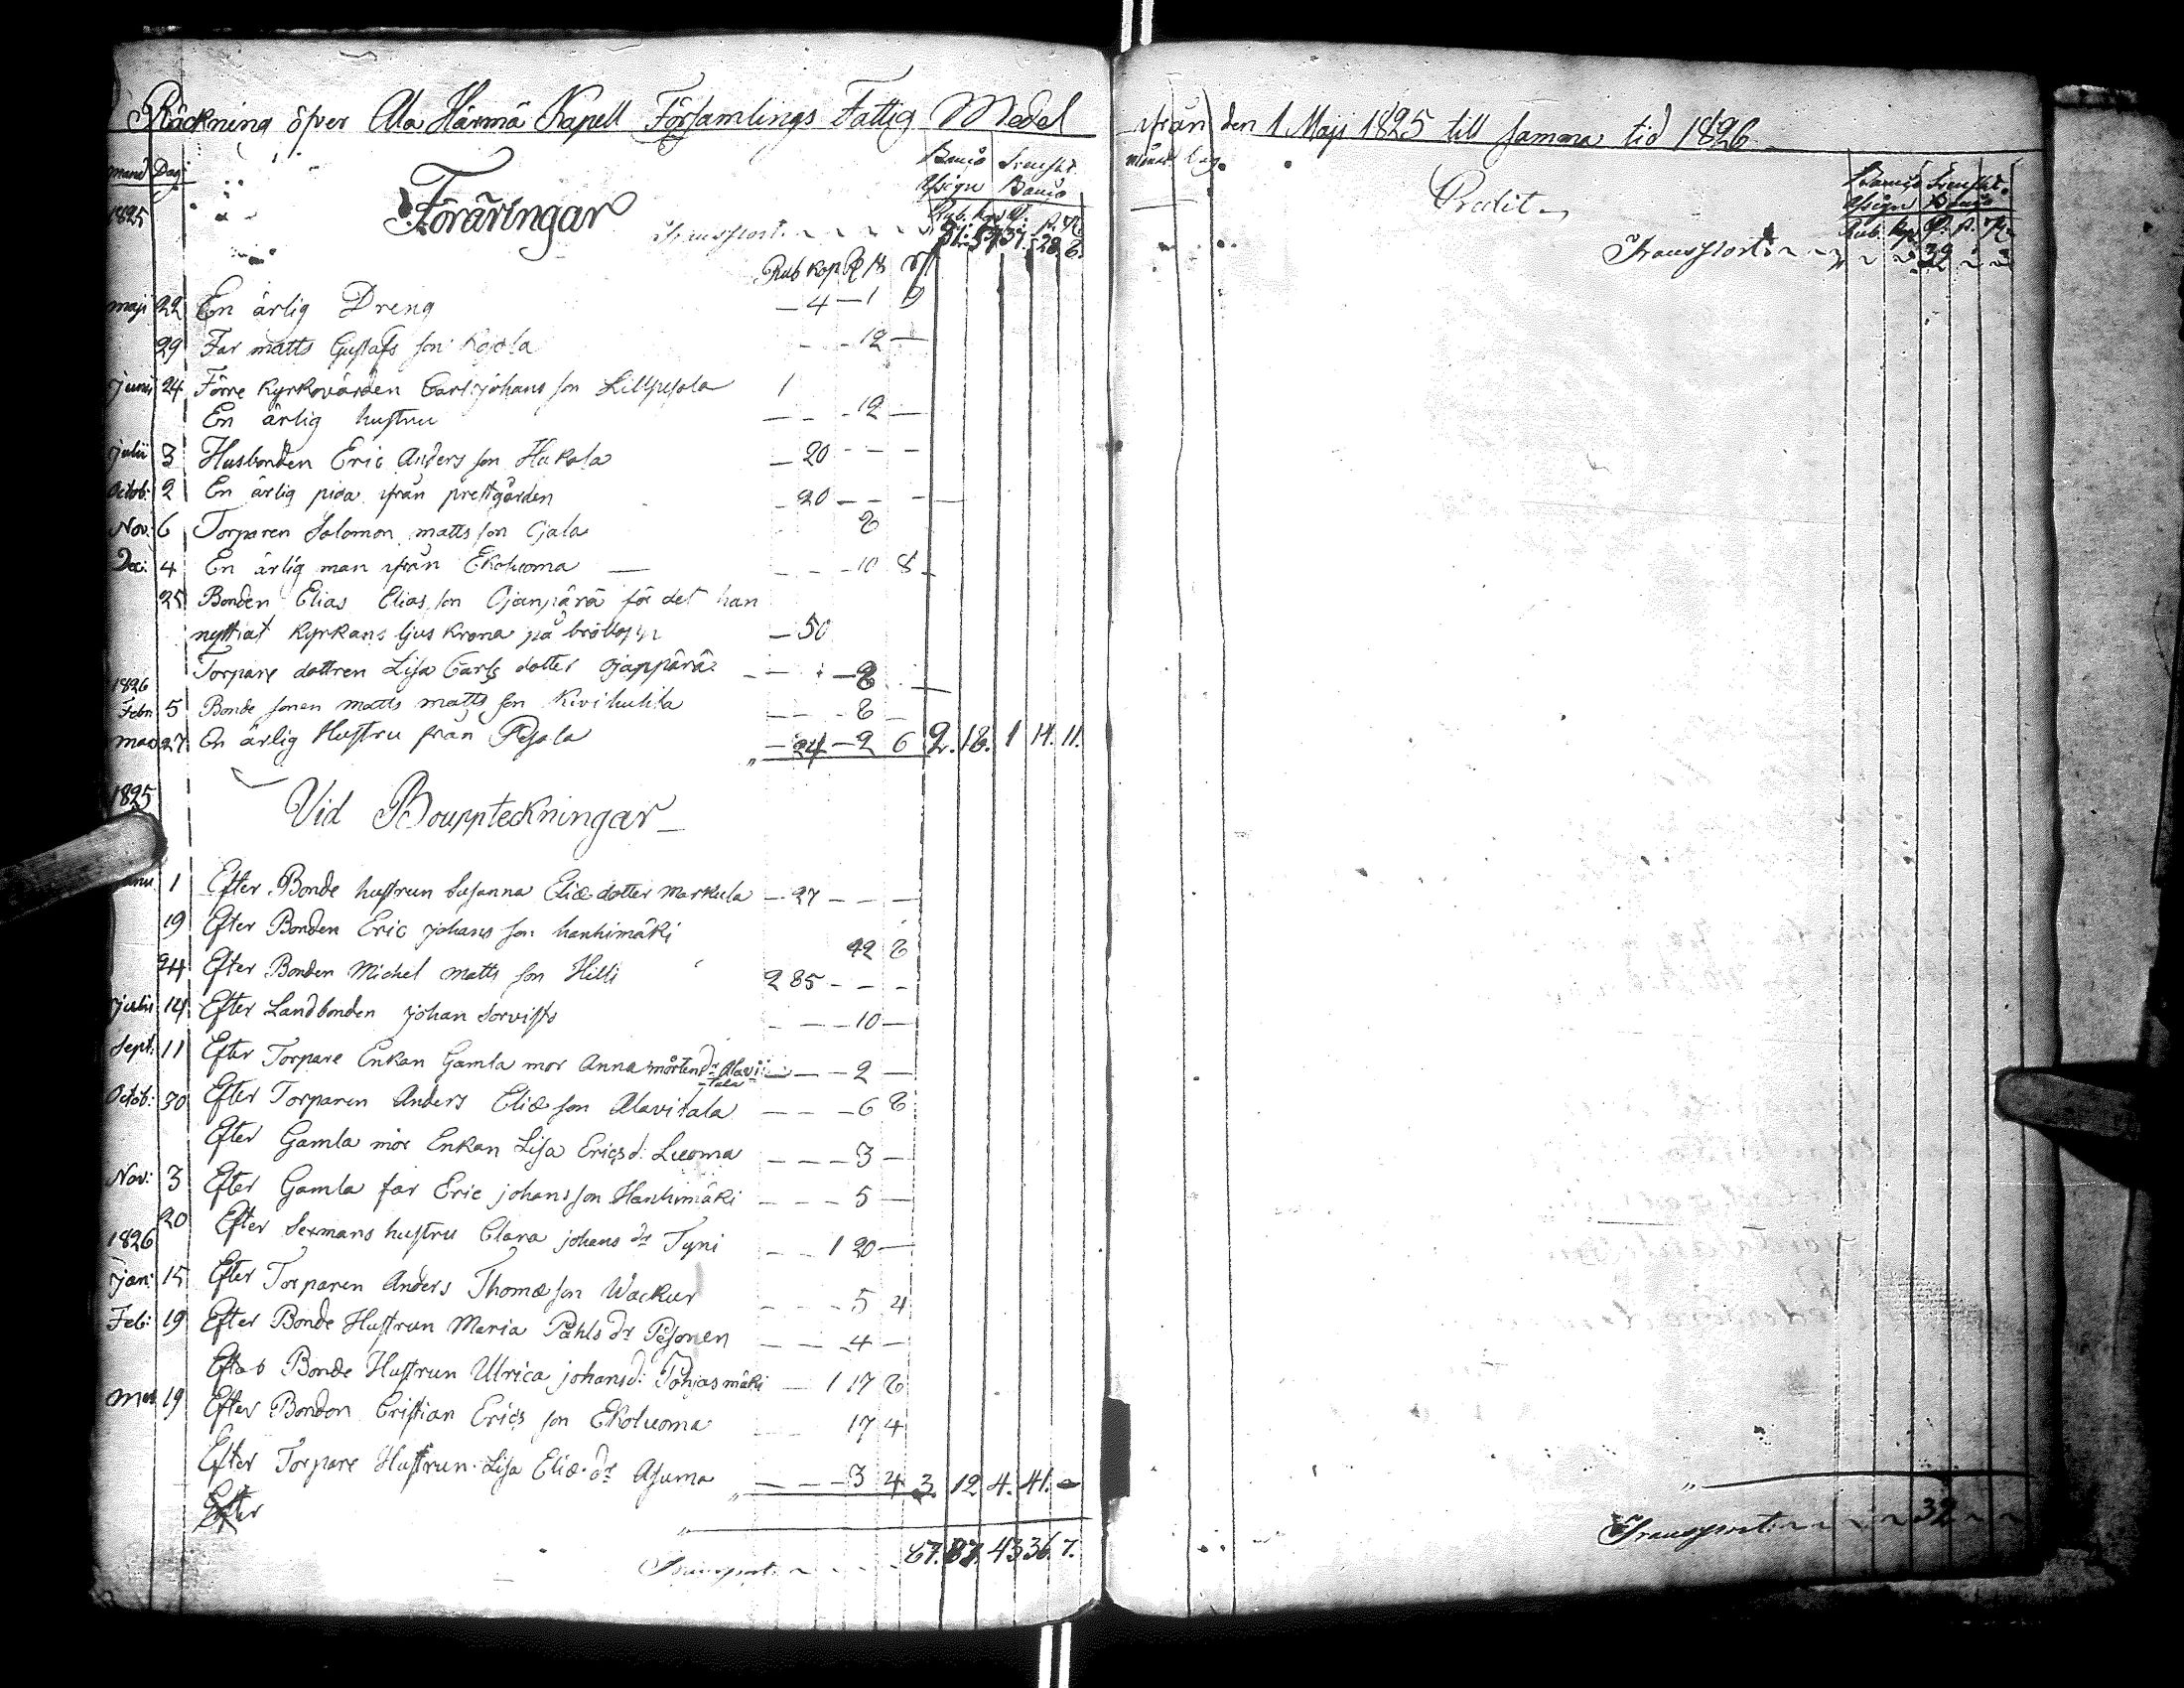 Räckning öfver Ala Härmä Kapell Församlings Fattig Medel
Månad Dag
Banco Svenskt
Assign Banco
1825 Föräringar
Rub. Kop. R. s. rf
Transport 81. 57 37. 28. 8.
Rub Kop R s rf
maji 22 En ärlig Dreng — 4 — 1 9
29 Far matts Gustafs son Kojola - - 12 —
junii 24 Förre Kyrkovärden Carl johans son Lillpesola 1
En ärlig hustru — - - 12 —
julii 3 Husbonden Eric Anders son Hukola — 20 - - -
Octob: 2 En ärlig piga ifrån prestgården - 20 — - -
Nov: 6 Torparen Salomon matts son Ojala 8
Dec: 4 En ärlig man ifrån Ekoluoma — - - - 10 8
25 Bonden Elias Elias son Ojanpärä för det han
nyttiat Kyrkans ljus krona på bröllopp — 50
Torpare dottren Lisa Carls dotter Ojanpärä - — - — 8
1826
Febr 5 Bonde sonen matts matts son Kivihuhta — - - 8 —
mar 27 En ärlig Hustru från Pesola — 24 — 2 6 2. 18. 1 14. 11.
1825
Vid Bouppteckningar
junii 1 Efter Bonde hustrun Susanna Eliæ dotter Markula — 27 — - -
19 Efter Bonden Eric johans son hanhimäki 42 8
24 Efter Bonden Michel matts son Hilli 2 85 - - -
julii 14 Efter Landbonden johan Sorvisto - — - 10 —
Sept: 11 Efter Torpare Enkan Gamla mor Anna mårtens dr Alavi
tala — - - 2 —
Octob: 30 Efter Torparen Anders Eliæ son Alavitala — - - 6 8
Efter Gamla mor Enkan Lisa Erics d: Luoma — - - 3 —
Nov: 3 Efter Gamla far Eric johans son Hanhimäki — - - 5 —
20 Efter Sexmans hustru Clara johans dr Tyni - - 1 20 —
1826
jan: 15 Efter Torparen Anders Thomæ son Wackur - - - 5 4
Feb: 19 Efter Bonde Hustrun Maria Påhls dr Pesonen — - - 4 —
Efter Bonde Hustrun Ulrica johans d: Pohjasmäki — 1 17 8
Mar 19 Efter Bonden Cristian Erics son Ekoluoma — 17 4
Efter Torpare Hustrun Lisa Eliæ dr Asuma — - - 3 4 3. 12 4. 41. -
Efter
Transport 87. 87. 43 36. 7.
ifrån den 1 Maji 1825 till samma tid 1826
Månad Dag
Credit
Banco Svenskt.
Assign Banco
Rub. Kop R. s. rf
Transport 32
Transport 32